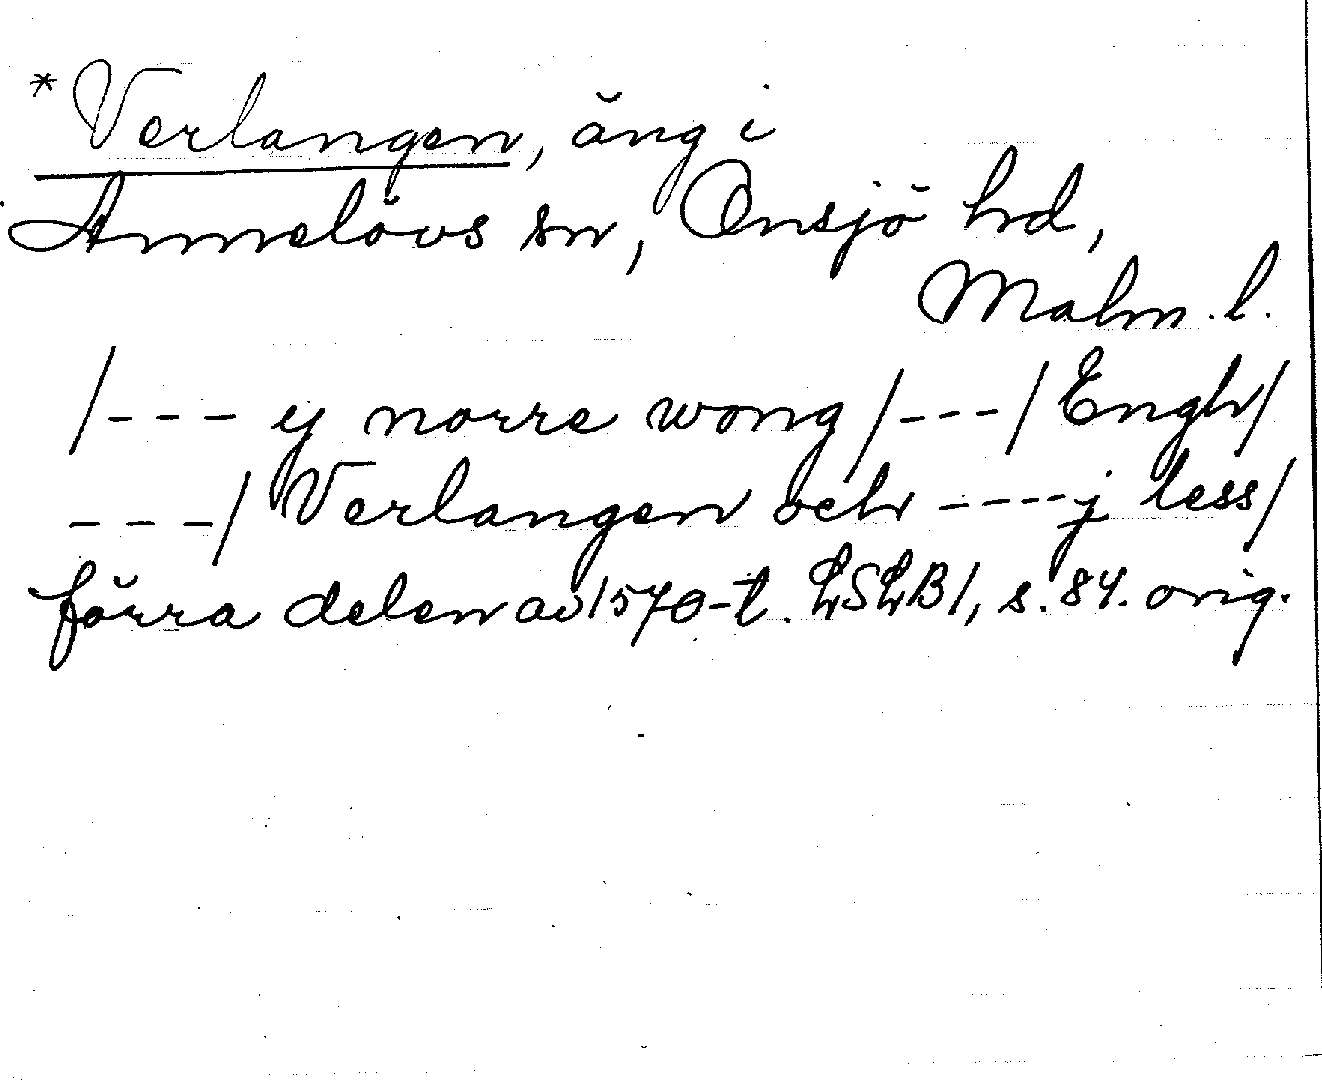 *Verlangen, äng i
Annelövs sn, Onsjö hd,
Malm. l.
/--- y norre wong/---/Engh/
---/Verlangen och ----j less/
förra delen av 1570-t. LSLB1, s. 84. orig.